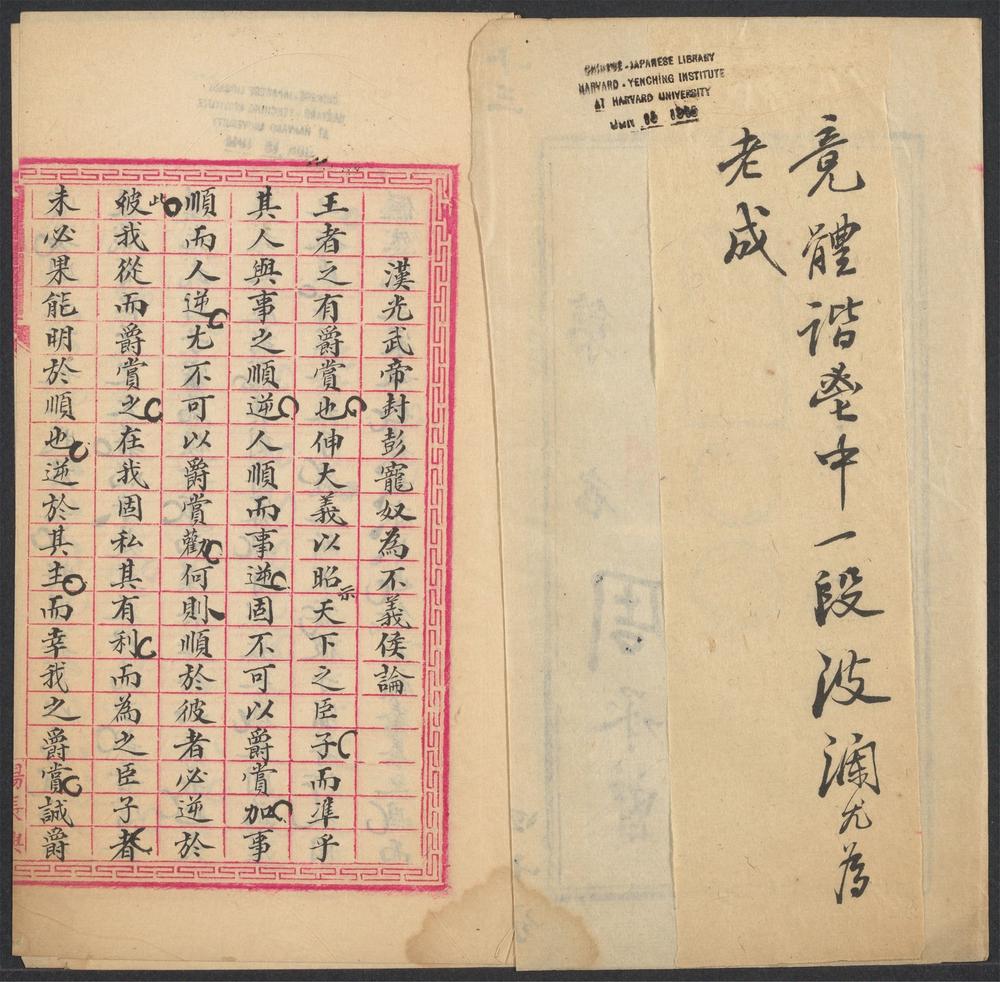 CHINESE-JAPANESE LIBRARY
HARVARD-YENCHING INSTITUTE
AT HARVARD UNIVERSITY
竟體諧瑩中一段波瀾尤為
老成
漢光武帝封彭寵奴為不義侯論
王者之有爵賞也伸大義以昭示天下之臣子而準乎
其人與事之順逆人順而事逆固不可以爵賞加事
順而人逆尤不可以爵賞勸何則順於彼者必逆於
此彼我從而爵賞之在我固私其有利而為之臣子者
未必果能明於順也逆於其主而幸我之爵賞誠爵